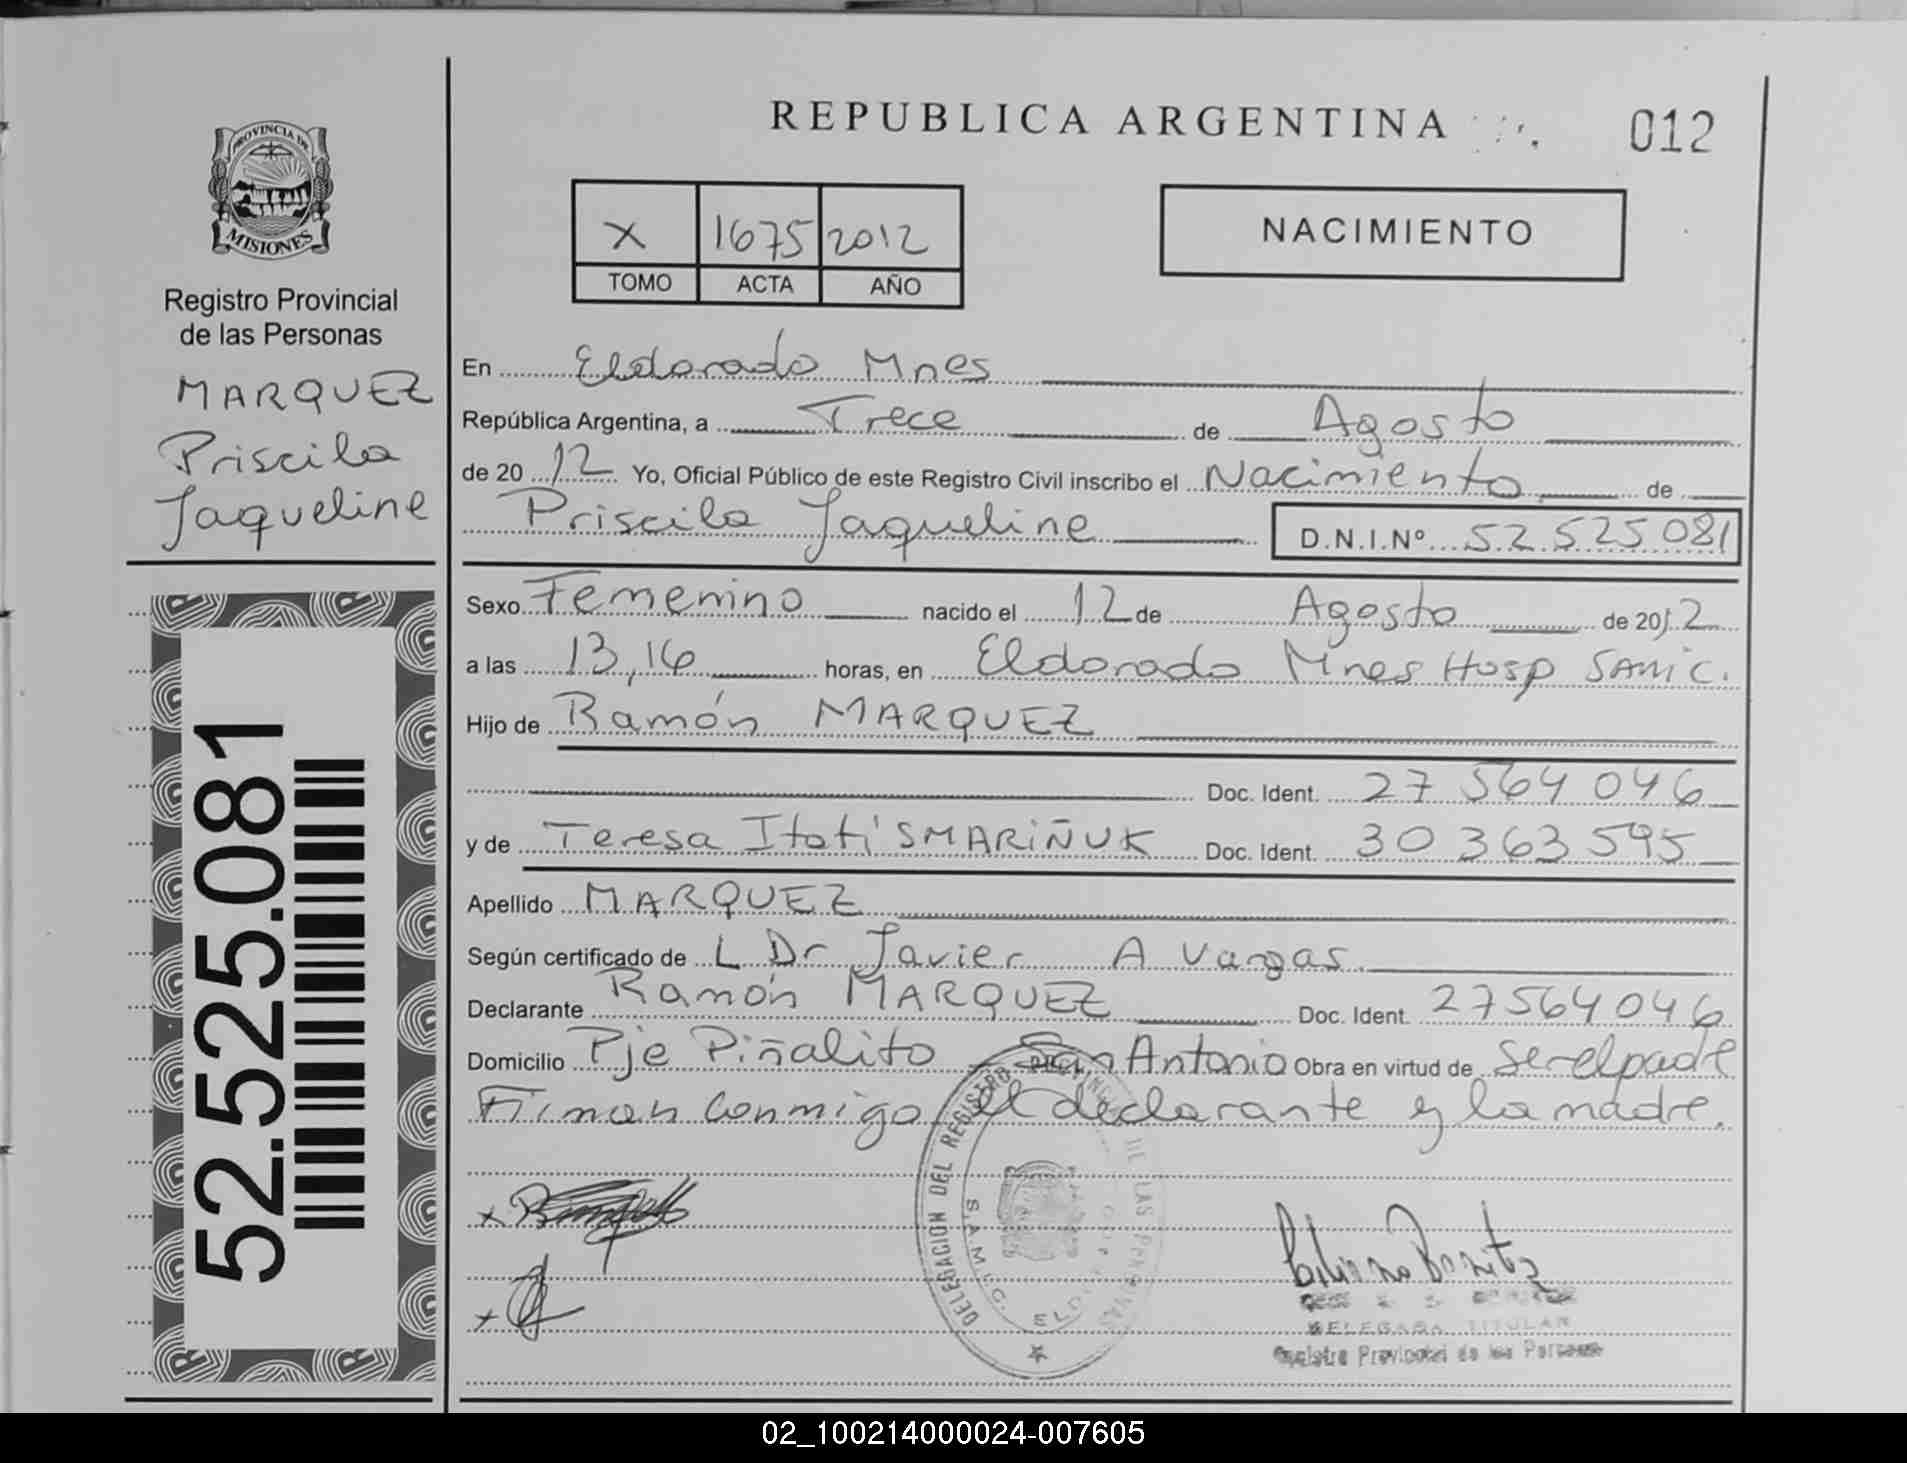 REPUBLICA ARGENTINA
012
PROVINCIA DE
MISIONES
Registro Provincial
de las Personas
MARQUEZ
Priscila
Jaqueline
52.525.081
X 1675 2012
TOMO ACTA AÑO
NACIMIENTO
En Eldorado Mnes
República Argentina, a Trece de Agosto
de 2012 Yo, Oficial Público de este Registro Civil inscribo el Nacimiento de
Priscila Jaqueline D.N.I.Nº 52.525.081
Sexo Femenino nacido el 12 de Agosto de 2012
a las 13,16 horas, en Eldorado Mnes Hosp SAMIC.
Hijo de Ramón MARQUEZ
Doc. Ident. 27 564 046
y de Teresa Itatí SMARIÑUK Doc. Ident. 30 363 595
Apellido MARQUEZ
Según certificado de L Dr Javier A Vargas.
Declarante Ramón MARQUEZ Doc. Ident. 27564046
Domicilio Pje Piñalito San Antonio Obra en virtud de Ser el padre
Firman conmigo el declarante y la madre.
DELEGACION DEL REGISTRO PROVINCIAL DE LAS PERSONAS
S.A.M.I.C.
DELEGADA TITULAR
Registro Provincial de las Personas
02_100214000024-007605